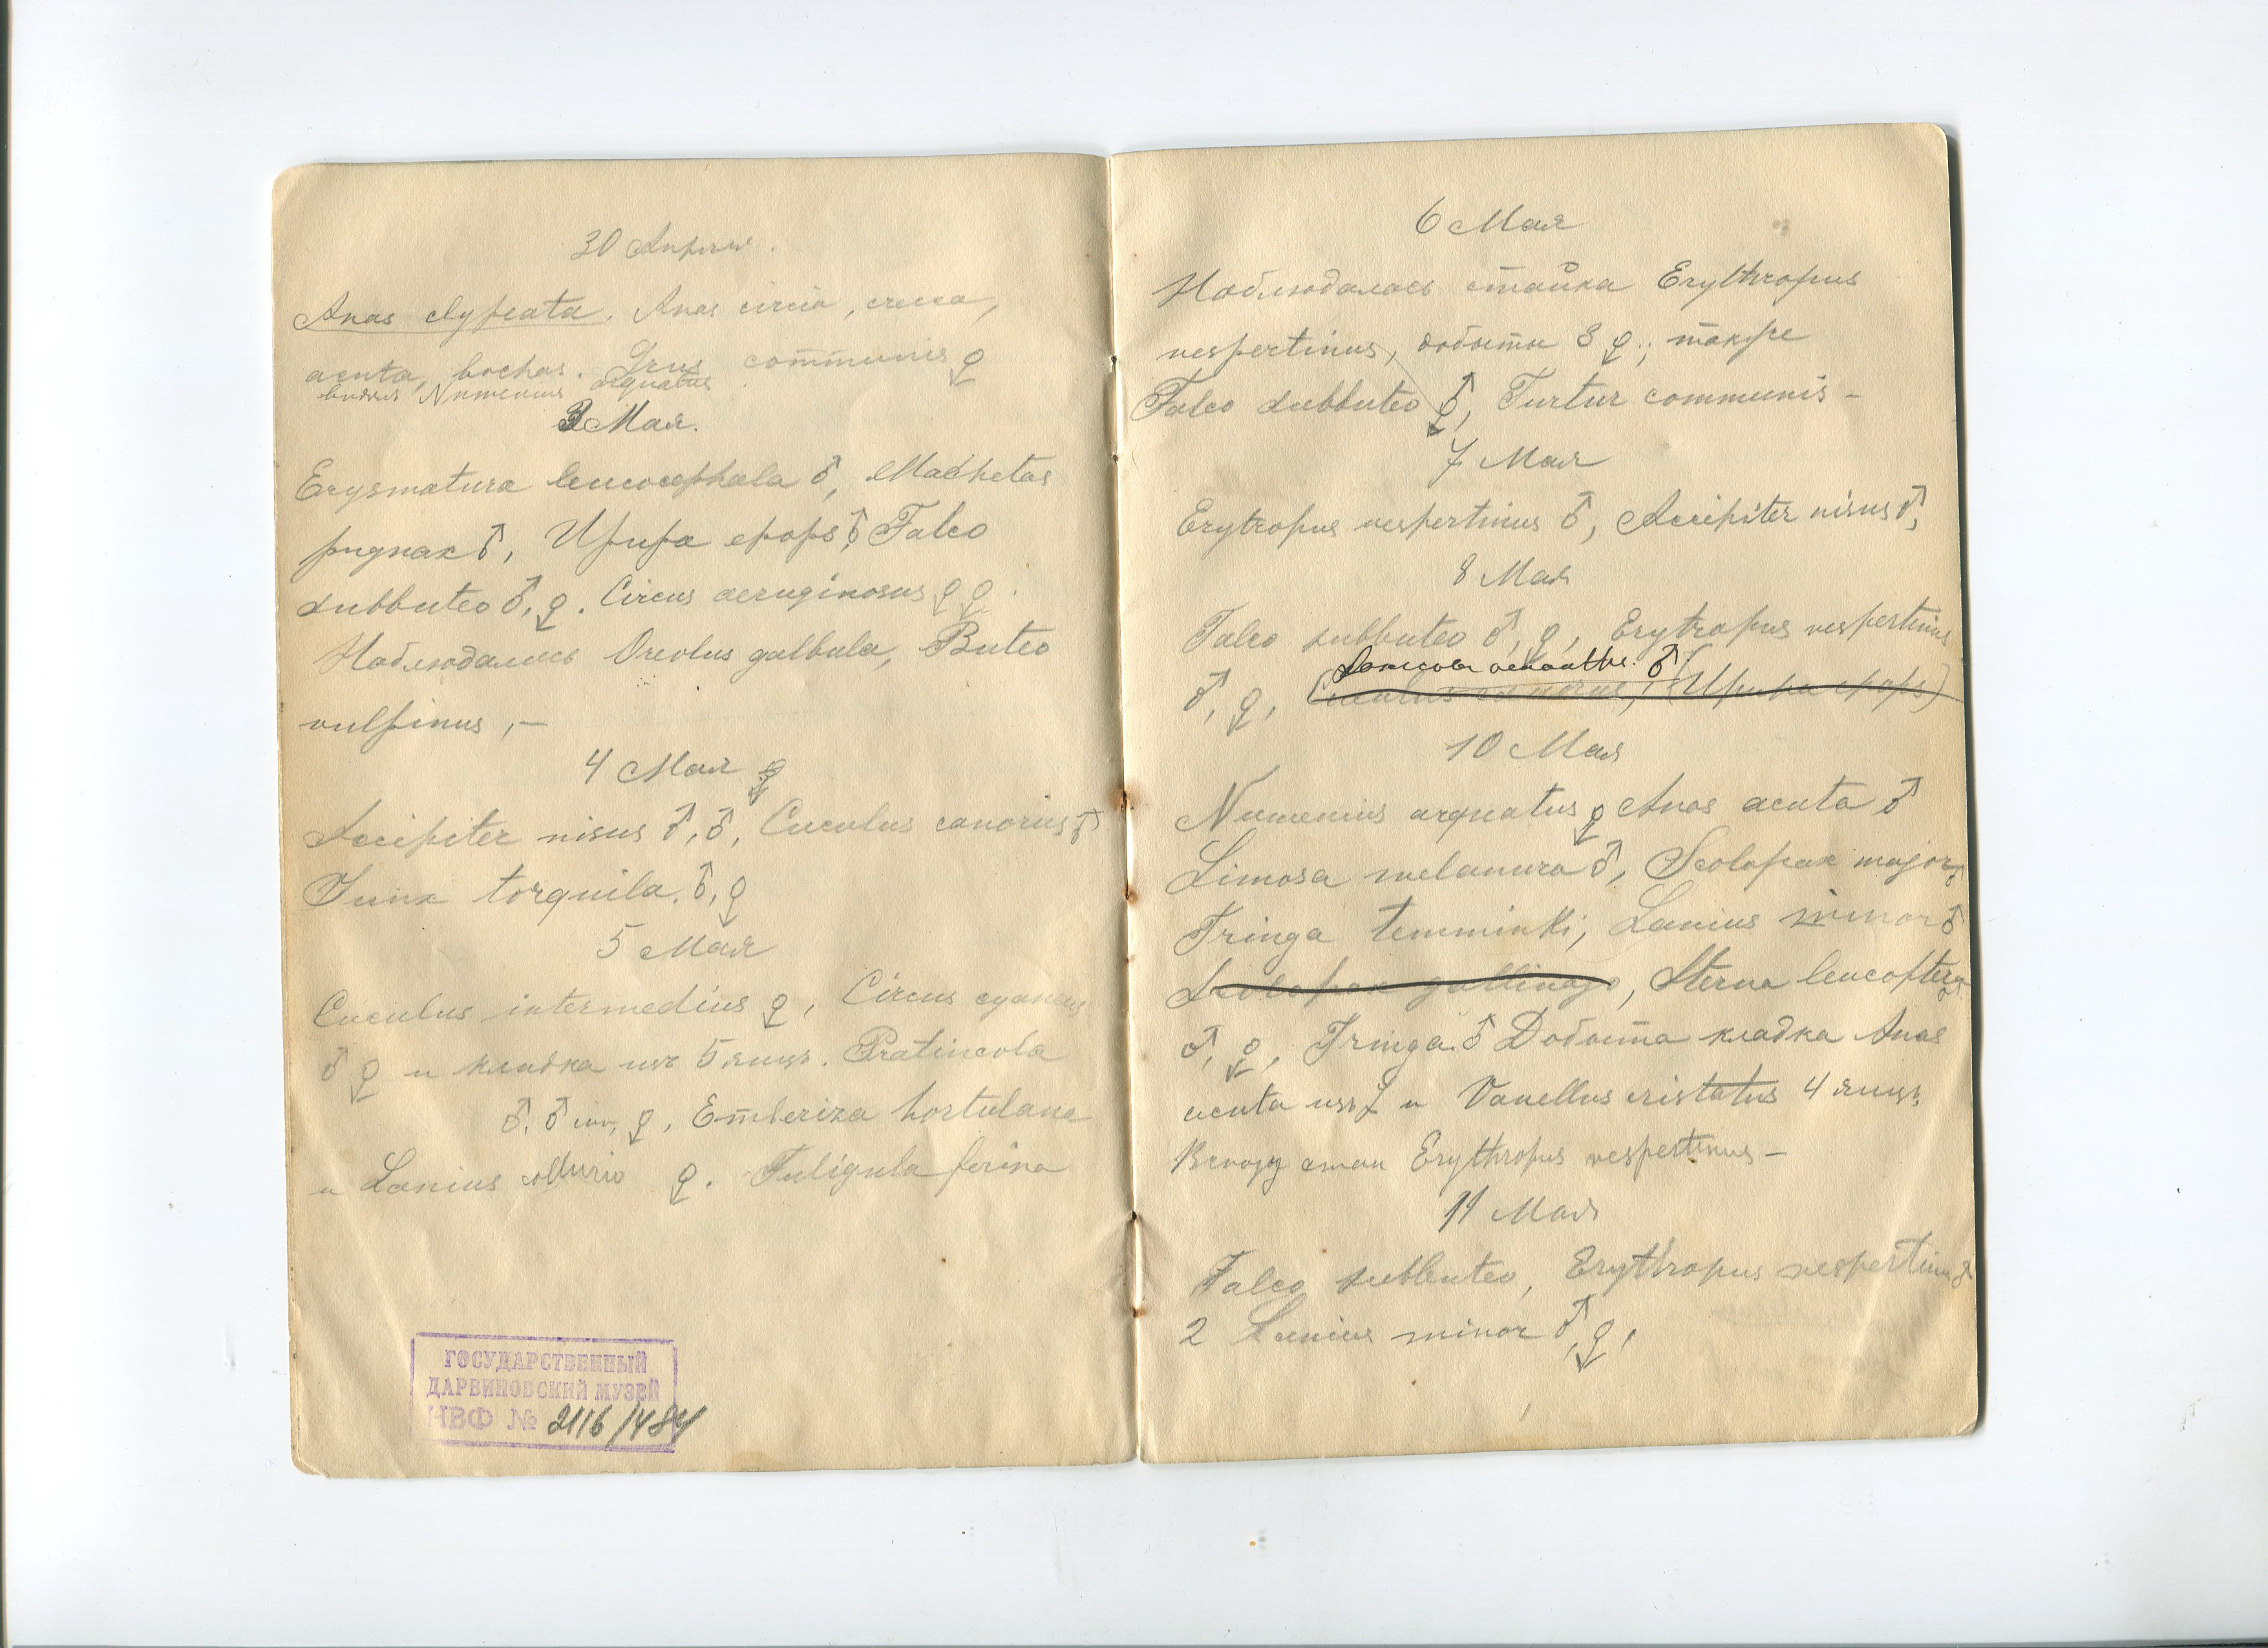 30 Апреля.
Anas clypeata, Anas circia, crecca,
acuta, bochas. Grus communis ♀
видел Numenius arquatus
3 Мая.
Erysmatura leucocephala ♂, Machetas
pugnax ♂, Upupa epops ♂, Falco
subbuteo ♂, ♀. Circus aeruginosus ♀ ♀.
Наблюдались Oreolus galbula, Buteo
vulpinus, —
4 Мая ♀
Accipiter nisus ♂, ♂, Cuculus canorus ♂
Junx torquila. ♂, ♀
5 Мая
Cuculus intermedius ♀, Circus cyaneus
♂ ♀ и кладка изъ 5 яицъ. Pratincola
♂, ♂ juv, ♀, Emberiza hortulana
и Lanius collurio ♀. Fuligula ferina
ГОСУДАРСТВЕННЫЙ
ДАРВИНОВСКИЙ МУЗЕЙ
НВФ № 2116/484
6 Мая
Наблюдалась стайка Erythropus
vespertinus, добыты 3 ♀; также
Falco subbuteo ♂, Turtur communis –
7 Мая
Erytropus vespertinus ♂, Accipiter nisus ♂,
8 Мая
Falco subbuteo ♂, ♀, Erytropus vespertinus
Saxicola oenanthe. ♂
♂, ♀, (Cuculus canorus, (Upupa epops)
10 Мая
Numenius arquatus ♀ Anas acuta ♂
Limosa melanura ♂, Scolopax major ♂
Tringa temminki, Lanius minor ♂
Scolopax gallinago, Sterna leucoptera
♂, ♀, Tringa. ♂ Добыта кладка Anas
acuta изъ 7 и Vanellus cristatus 4 яицъ.
Всюду стаи Erythropus vespertinus –
11 Мая
Falco subbuteo, Erythropus vespertinus ♂
2 Lanius minor ♂, ♀,